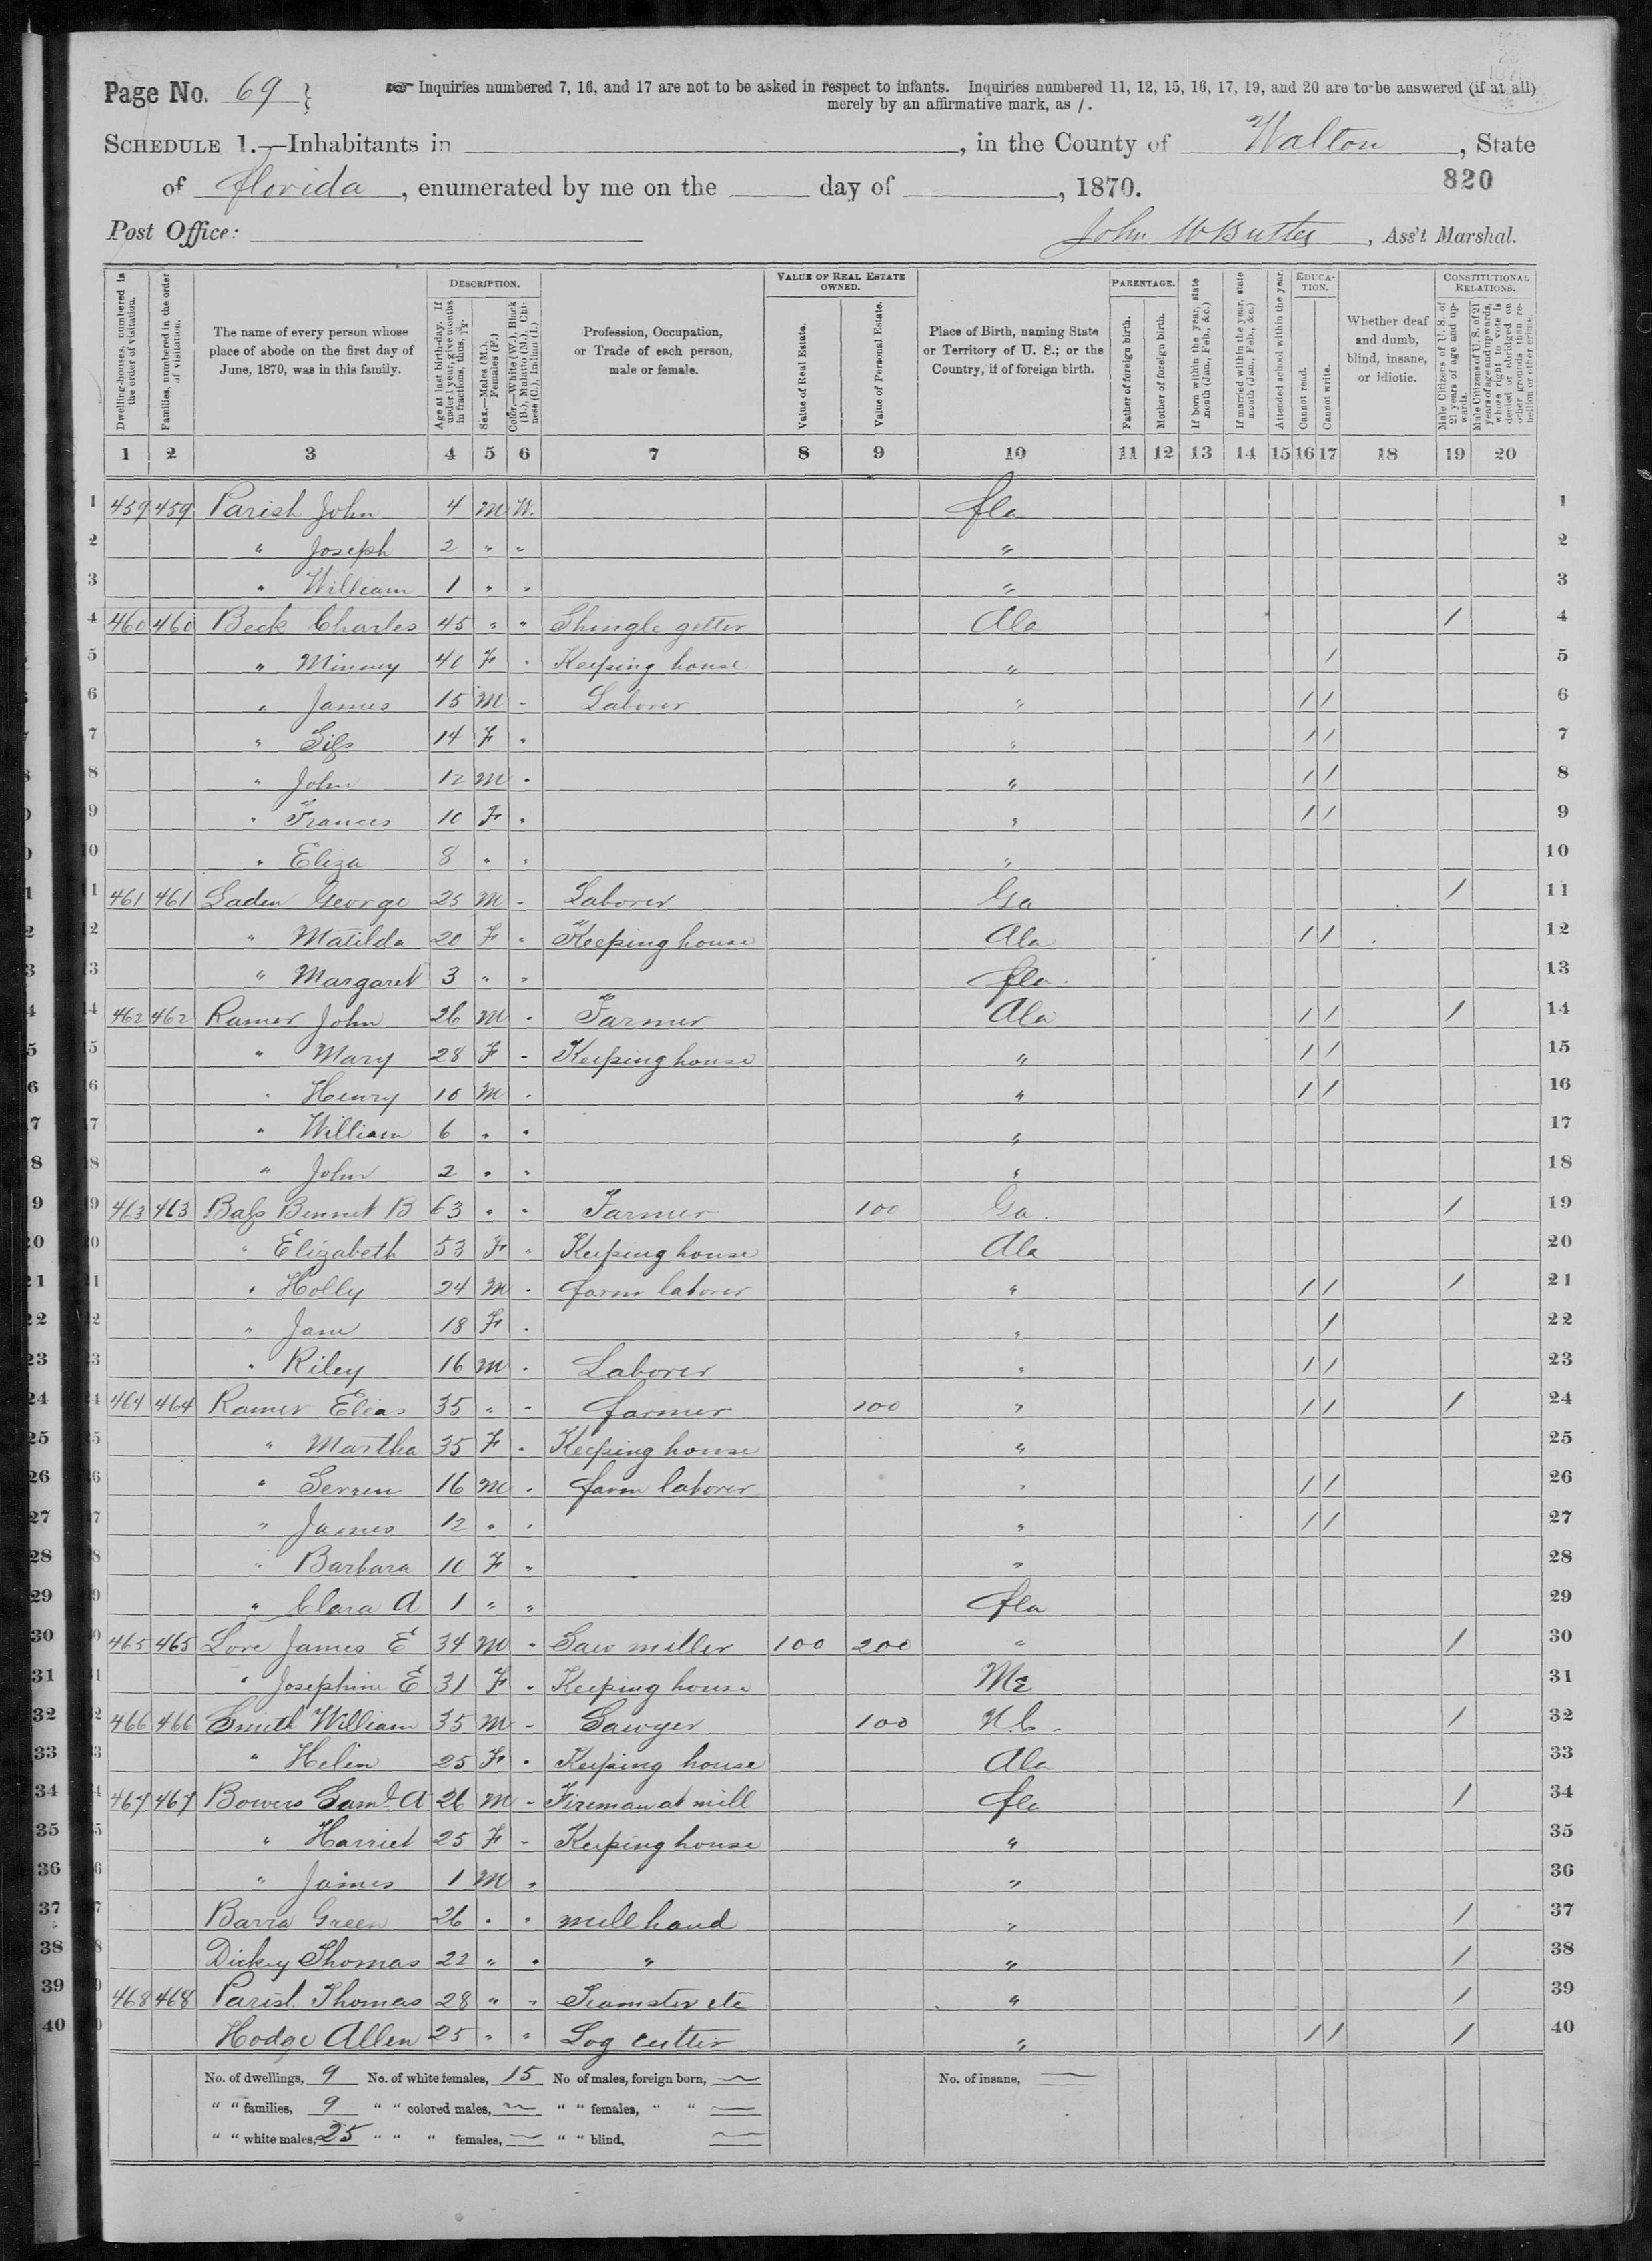 Page No. 69
Inquiries numbered 7, 16, and 17 are not to be asked in respect to infants. Inquiries numbered 11, 12, 15, 16, 17, 19, and 20 are to be answered (if at all)
merely by an affirmative mark, as /.
SCHEDULE 1.—Inhabitants in , in the County of Walton, State
of Florida, enumerated by me on the day of , 1870. 820
Post Office: John W Butler, Ass't Marshal.
Dwelling-houses, numbered in the order of visitation.
Families, numbered in the order of visitation.
The name of every person whose place of abode on the first day of June, 1870, was in this family.
DESCRIPTION.
Age at last birth-day. If under 1 year, give months in fractions, thus, 3/12.
Sex.—Males (M.), Females (F.)
Color.—White (W.), Black (B.), Mulatto (M.), Chinese (C.), Indian (I.)
Profession, Occupation, or Trade of each person, male or female.
VALUE OF REAL ESTATE OWNED.
Value of Real Estate.
Value of Personal Estate.
Place of Birth, naming State or Territory of U. S.; or the Country, if of foreign birth.
PARENTAGE.
Father of foreign birth.
Mother of foreign birth.
If born within the year, state month (Jan. Feb., &c.)
If married within the year, state month (Jan., Feb., &c.)
Attended school within the year.
EDUCATION.
Cannot read.
Cannot write.
Whether deaf and dumb, blind, insane, or idiotic.
CONSTITUTIONAL RELATIONS.
Male Citizens of U. S. of 21 years of age and upwards.
Male Citizens of U. S. of 21 years of age and upwards, whose right to vote is denied or abridged on other grounds than rebellion or other crime.
1 2 3 4 5 6 7 8 9 10 11 12 13 14 15 16 17 18 19 20
1 459 459 Parish John 4 M W. Fla 1
2 " Joseph 2 " " " 2
3 " William 1 " " " 3
4 460 460 Beck Charles 45 " " Shingle getter Ala / 4
5 " Minney 40 F " Keeping house " / 5
6 " James 15 M " Laborer " / / 6
7 " 14 F " " / / 7
8 " John 12 M " " / / 8
9 " Frances 10 F " " / / 9
10 " Eliza 8 " " " 10
11 461 461 Laden George 25 M " Laborer Ga / 11
12 " Matilda 20 F " Keeping house Ala / / 12
13 " Margaret 3 " " Fla. 13
14 462 462 Ramer John 26 M " Farmer Ala / / / 14
15 " Mary 28 F " Keeping house " / / 15
16 " Henry 10 M " " / / 16
17 " William 6 " " " 17
18 " John 2 " " " 18
19 463 463 Bass Bennet B 63 " " Farmer 100 Ga. / 19
20 " Elizabeth 53 F " Keeping house Ala 20
21 " Holly 24 M " farm laborer " / / / 21
22 " Jane 18 F " " / 22
23 " Riley 16 M " Laborer " / / 23
24 464 464 Ramer Elias 35 " " farmer 100 " / / / 24
25 " Martha 35 F " Keeping house " 25
26 " 16 M " farm laborer " / / 26
27 " James 12 " " " / / 27
28 " Barbara 10 F " " 28
29 " Clara A 1 " " Fla 29
30 465 465 Love James E 34 M " Saw miller 100 200 " / 30
31 " Josephine E 31 F " Keeping house Me 31
32 466 466 Smith William 35 M " Sawyer 100 N.C. / 32
33 " Helen 25 F " Keeping house Ala 33
34 467 467 Bowers Saml. A 26 M " Fireman at mill Fla / 34
35 " Harriet 25 F " Keeping house " 35
36 " James 1 M " " 36
37 Barra Green 26 " " mill hand " / 37
38 Dickey Thomas 22 " " " " / 38
39 468 468 Parish Thomas 28 " " Teamster etc " / 39
40 Hodge Allen 25 " " Log cutter " / / / 40
No. of dwellings, 9 No. of white females, 15 No of males, foreign born, — No. of insane, —
" " families, 9 " " colored males, — " " females, " " —
" " white males, 25 " " " females, — " " blind, —